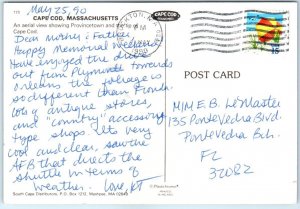 113
CAPE COD, MASSACHUSETTS
An aerial view showing Provincetown and the tip of
Cape Cod.
May 25, 90
Dear Mother & Father,
Happy Memorial Weekend.
Have enjoyed the drive
out from Plymouth towards
Orleans the foliage is
so different than Florida
lots of antique stores,
and "country" accessory
type shops. Its very
cool and clear, saw the
AFB that directs the
shuttle in terms of
weather. Love, KT
POST CARD
M/M E.B. LeMaster
135 PonteVedra Blvd.
PonteVedra Bch.
FL
32082
South Cape Distributors, P.O. Box 1212, Mashpee, MA 02649